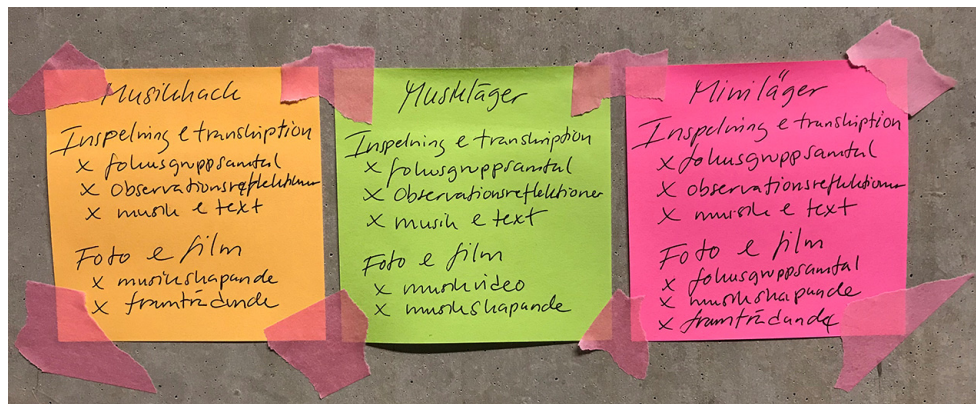 Musikhack
Inspelning e transkription
x fokusgruppsamtal
x observationsreflektioner
x musik e text
Foto e film
x musikskapande
x framträdande
Musikläger
Inspelning e transkription
x fokusgruppsamtal
x observationsreflektioner
x musik e text
Foto e film
x musikvideo
x musikskapande
Miniläger
Inspelning e transkription
x fokusgruppsamtal
x observationsreflektioner
x musik e text
Foto e film
x fokusgruppsamtal
x musikskapande
x framträdande